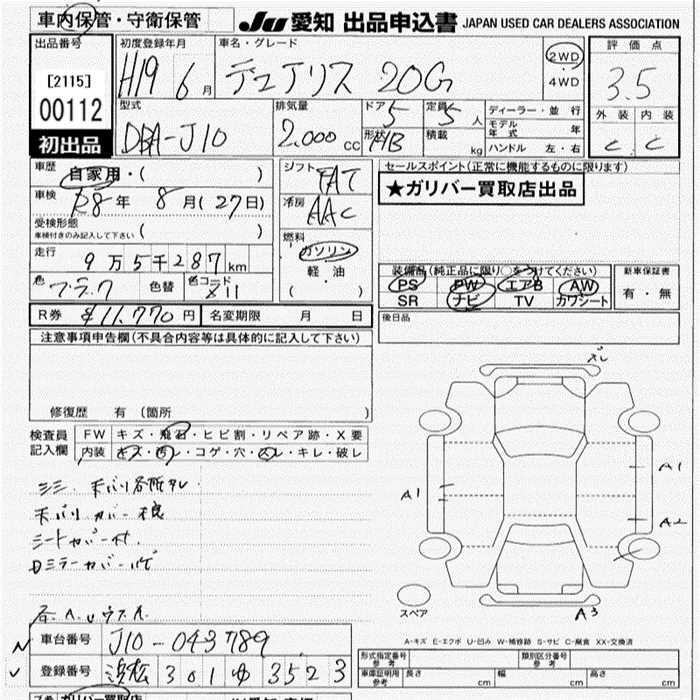 車内保管・守衛保管
JU 愛知 出品申込書 JAPAN USED CAR DEALERS ASSOCIATION
出品番号 初度登録年月 車名・グレード 2WD 評価点
[2115] H19 6月 デュアリス 20G 4WD 3.5
00112 型式 排気量 ドア 5 定員 5人 ディーラー・並行 外装 内装
初出品 DBA-J10 2.000cc 形状 HB 積載 kg モデル年式 年 C C
ハンドル 左・右
車歴 自家用・( ) シフト FAT セールスポイント(正常に機能するものに限ります)
車検 R8年 8月(27日) 冷房 AAC ★ガリバー買取店出品
受検形態
車検付きのみ記入して下さい ( ) 燃料
走行 9万5千287km ガソリン
軽油
( )
装備品(純正品に限り○をつけてください) 新車保証書
色 ブラック 色替 色コード Z11 PS PW エアB AW 有・無
SR ナビ TV カワシート
R券 ¥11,770円 名変期限 月 日 後日品
注意事項申告欄(不具合内容等は具体的に記入して下さい)
修復歴 有 (箇所 )
検査員 FW キズ・飛石・ヒビ割・リペア跡・X要
記入欄 内装 キズ・汚レ・コゲ・穴・凹レ・キレ・破レ
A1
A1
A2
A3
スペア
A-キズ E-エクボ U-凹み W-補修跡 S-サビ C-腐食 XX-交換済
車台番号 J10-043789
登録番号 浜松 301 ゆ 3523
形式指定番号 参考 類別区分番号 参考
車庫証明用 参考 長さ cm 幅 cm 高さ cm